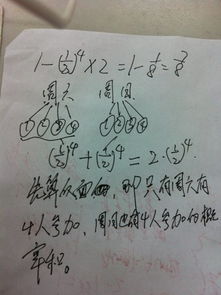 1-(1/2)^4×2=1-1/8=7/8
周六 周日
①②③④ ①②③④
(1/2)^4+(1/2)^4=2·(1/2)^4
先算反面的,即只有周六有
4人参加,周日也有4人参加的概
率和。